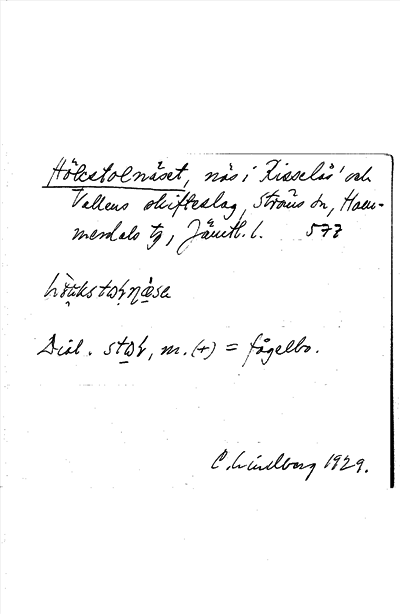 Hökstolnäset, näs i Risselås' och
Vallens skifteslag, Ströms sn, Ham-
merdals tg, Jämtl. l. 577
Dial. stol, m. (+) = fågelbo.
C. Lindberg 1929.